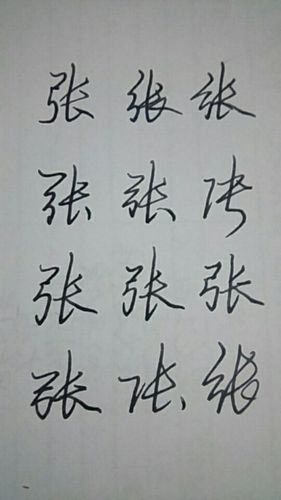 张 张 张
张 张 张
张 张 张
张 张 张